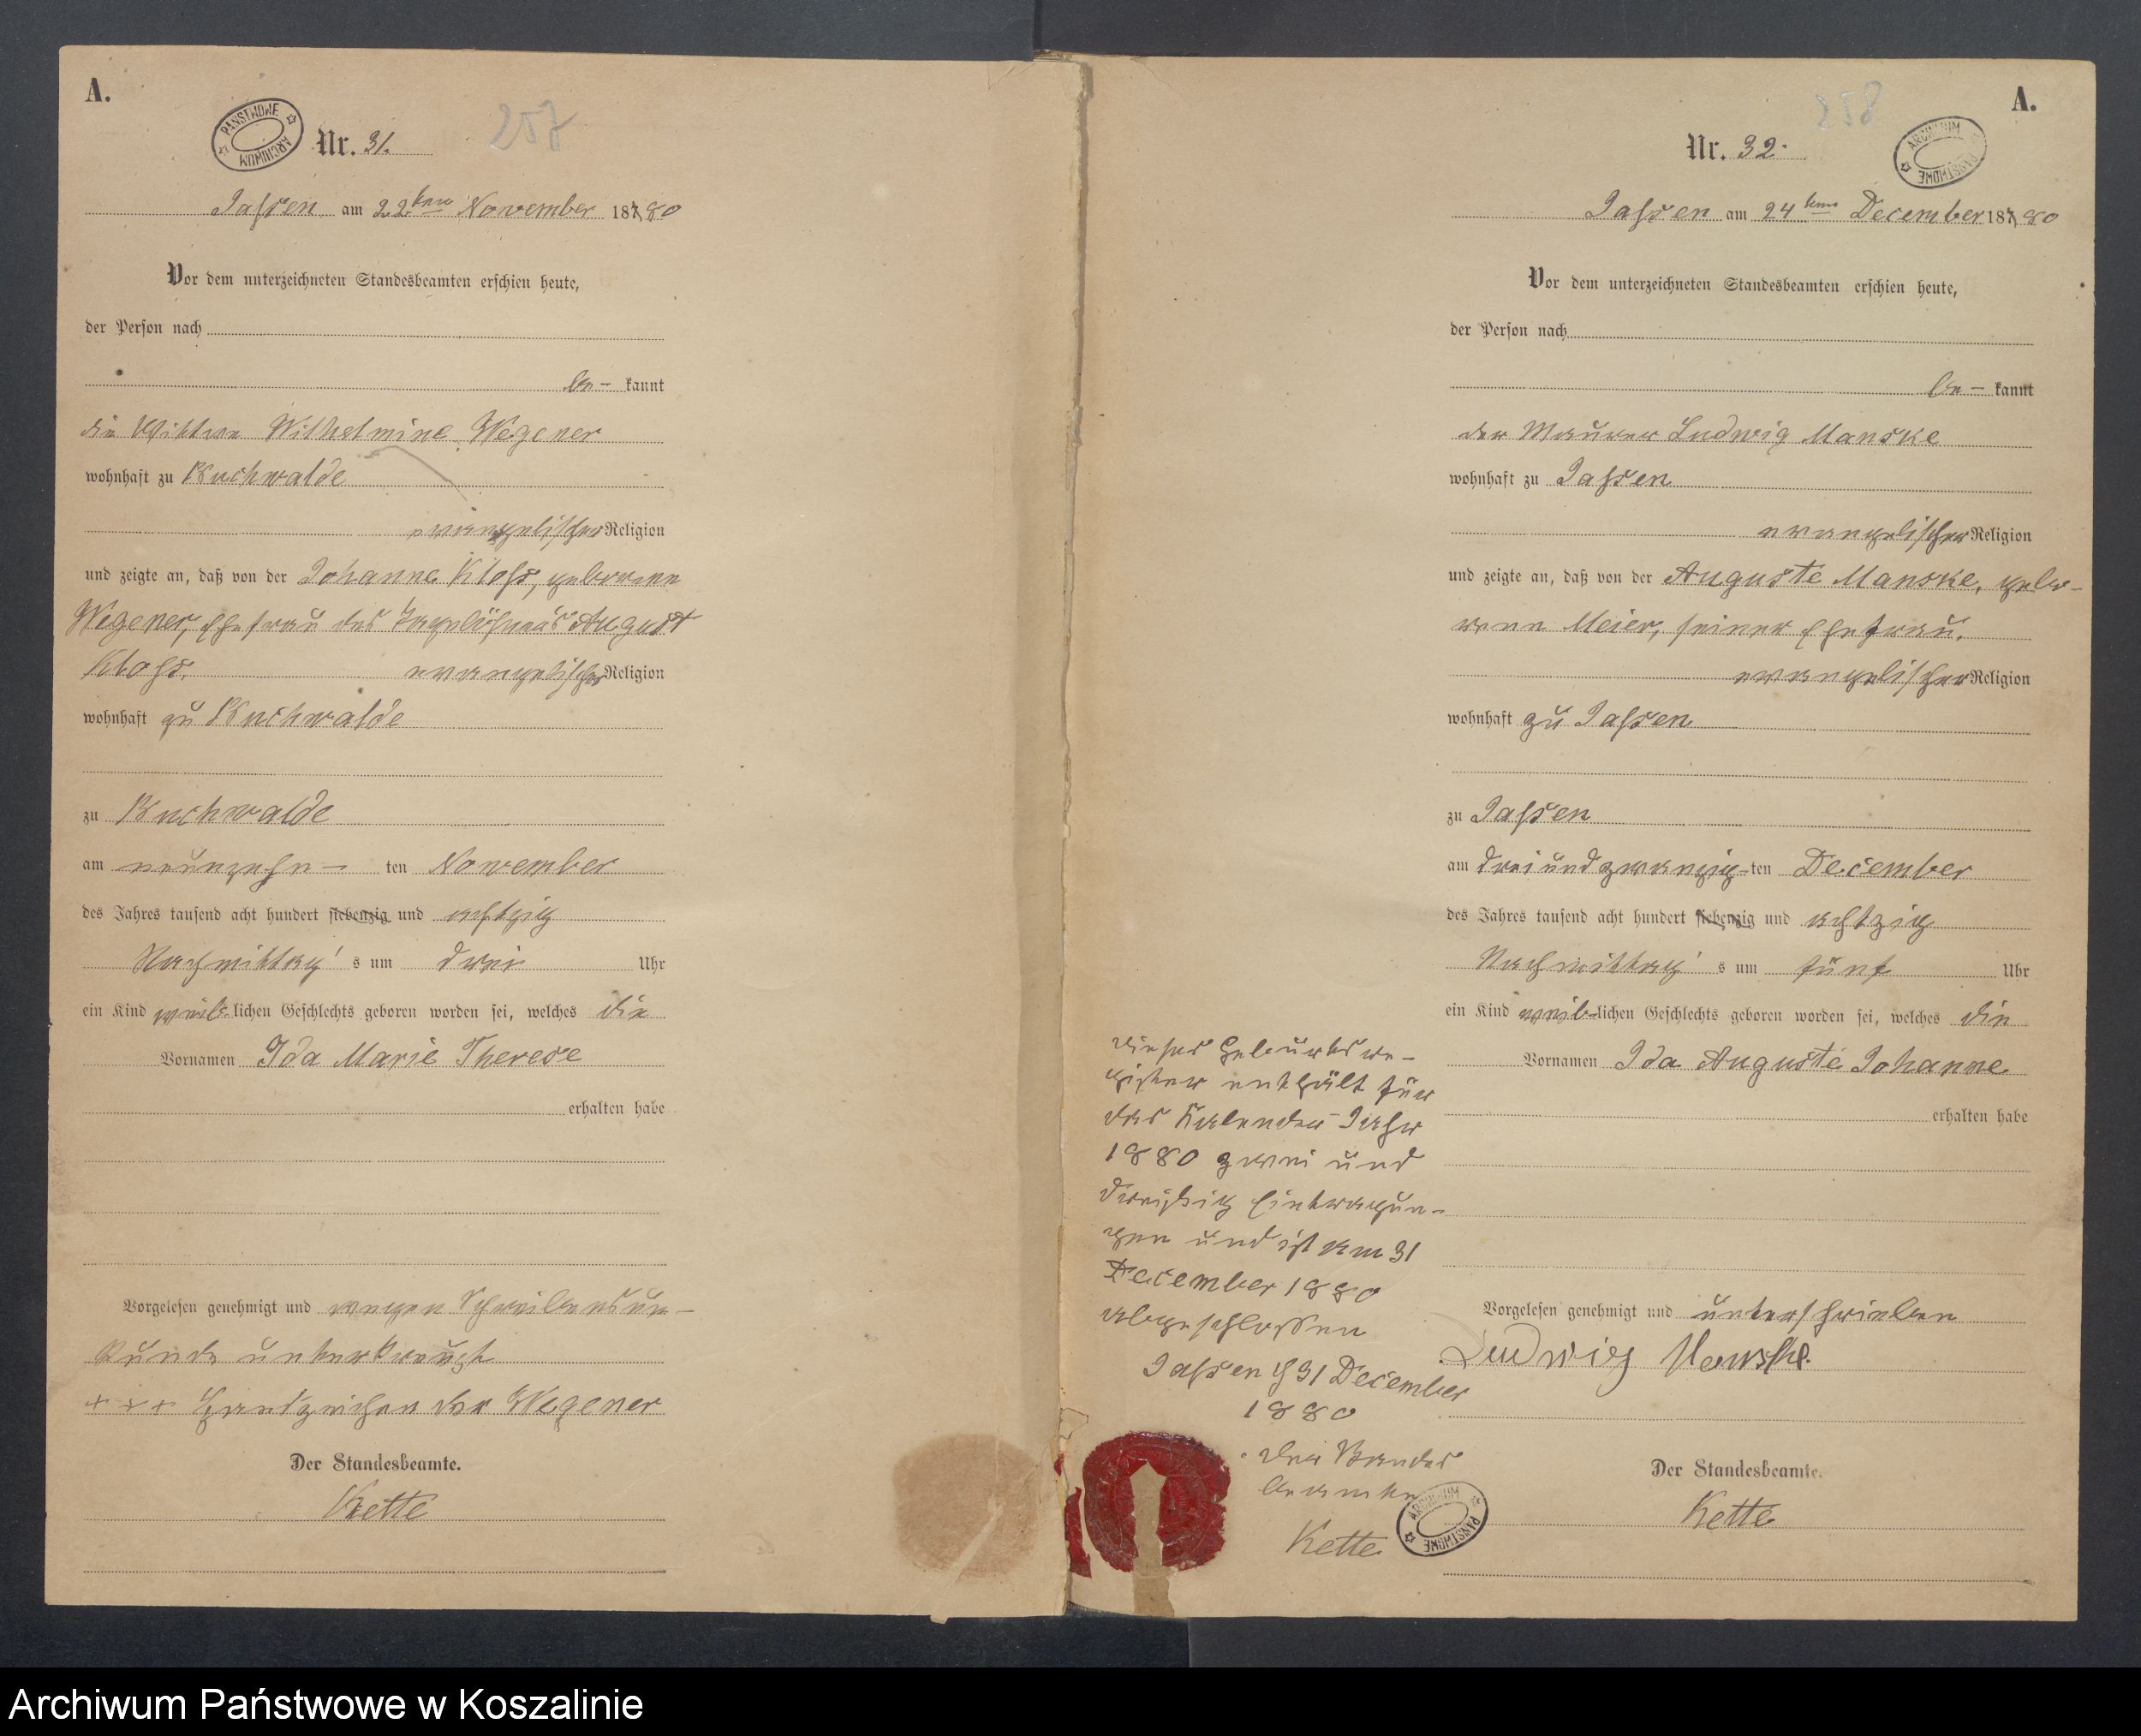 A.
PAŃSTWOWE ARCHIWUM
Nr. 31.
257
Jassen am 22ten November 187 80
Vor dem unterzeichneten Standesbeamten erschien heute,
der Person nach
be- kannt
die Wittwe Wilhelmine Wegener
wohnhaft zu Buchwalde
evangelischer Religion
und zeigte an, daß von der Johanne Kloss, geborene
Wegener, Ehefrau des Tagelöhners August
Kloss. evangelischer Religion
wohnhaft zu Buchwalde
zu Buchwalde
am neunzehn- ten November
des Jahres tausend acht hundert siebenzig und achtzig
Nachmittag's um drei Uhr
ein Kind weib-lichen Geschlechts geboren worden sei, welches die
Vornamen Ida Marie Therese
erhalten habe
Vorgelesen genehmigt und wegen Schreibensun-
kunde unterkreuzt
+ + + Handzeichen der Wegener
Der Standesbeamte.
Kette
A.
258
ARCHIWUM PAŃSTWOWE
Nr. 32.
Jassen am 24ten December 187 80
Vor dem unterzeichneten Standesbeamten erschien heute,
der Person nach
be- kannt
der Maurer Ludwig Manske
wohnhaft zu Jassen
evangelischer Religion
und zeigte an, daß von der Auguste Manske, gebo-
rene Meier, seiner Ehefrau,
evangelischer Religion
wohnhaft zu Jassen
zu Jassen
am dreiundzwanzig-ten December
des Jahres tausend acht hundert siebenzig und achtzig
Nachmittag's um fünf Uhr
ein Kind weib-lichen Geschlechts geboren worden sei, welches die
Vornamen Ida Auguste Johanne
erhalten habe
Vorgelesen genehmigt und unterschrieben
Ludwig Manske.
Der Standesbeamte.
Kette
Dieses Geburtsre-
gister enthält für
das Kalender-Jahr
1880 zwei und
dreißig Eintragun-
gen und ist am 31
December 1880
abgeschlossen
Jassen d 31 December
1880
Der Standes
beamte
Kette
ARCHIWUM PAŃSTWOWE
Archiwum Państwowe w Koszalinie